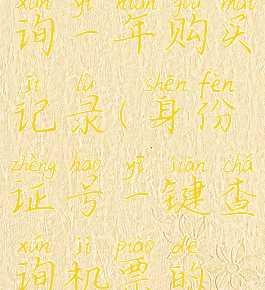 xún yī nián gòu mǎi
询一年购买
jì lù shēn fèn
记录(身份
zhèng hào yī jiàn chá
证号一键查
xún jī piào de
询机票的